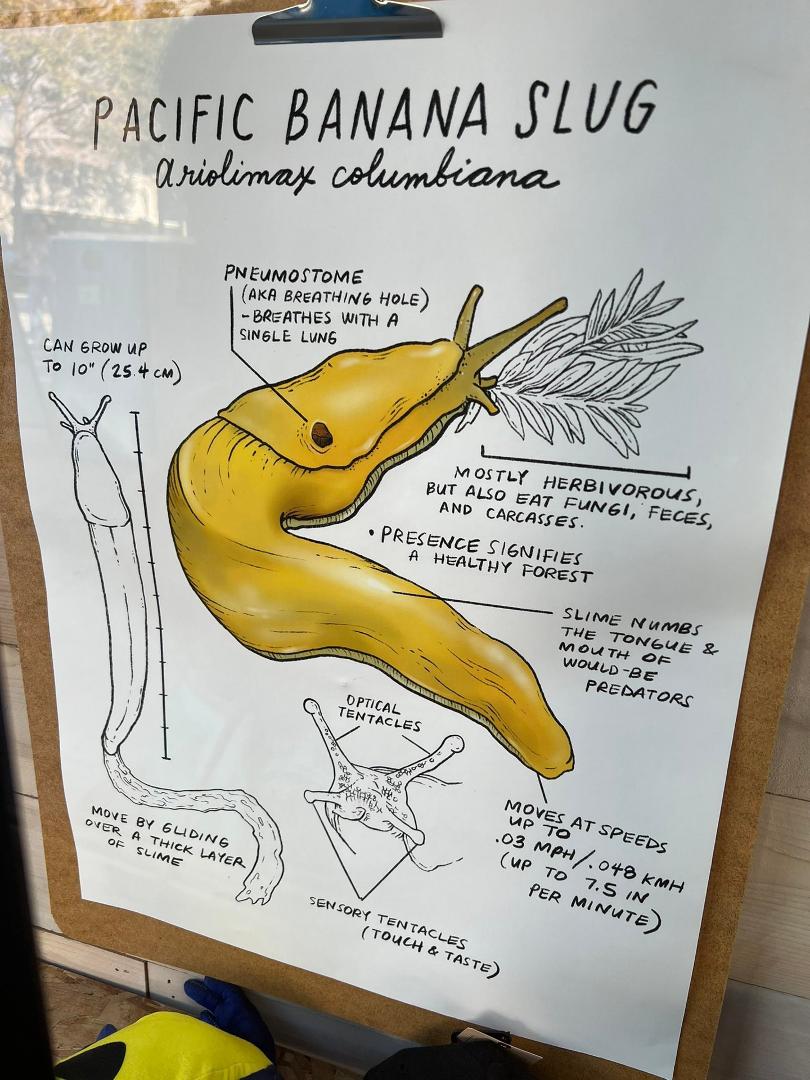 PACIFIC BANANA SLUG
Ariolimax columbiana
PNEUMOSTOME
(AKA BREATHING HOLE)
- BREATHES WITH A
SINGLE LUNG
CAN GROW UP
TO 10" (25.4 CM)
MOSTLY HERBIVOROUS,
BUT ALSO EAT FUNGI, FECES,
AND CARCASSES.
• PRESENCE SIGNIFIES
A HEALTHY FOREST
SLIME NUMBS
THE TONGUE &
MOUTH OF
WOULD-BE
PREDATORS
OPTICAL
TENTACLES
MOVE BY GLIDING
OVER A THICK LAYER
OF SLIME
MOVES AT SPEEDS
UP TO
.03 MPH/.048 KMH
(UP TO 7.5 IN
PER MINUTE)
SENSORY TENTACLES
(TOUCH & TASTE)